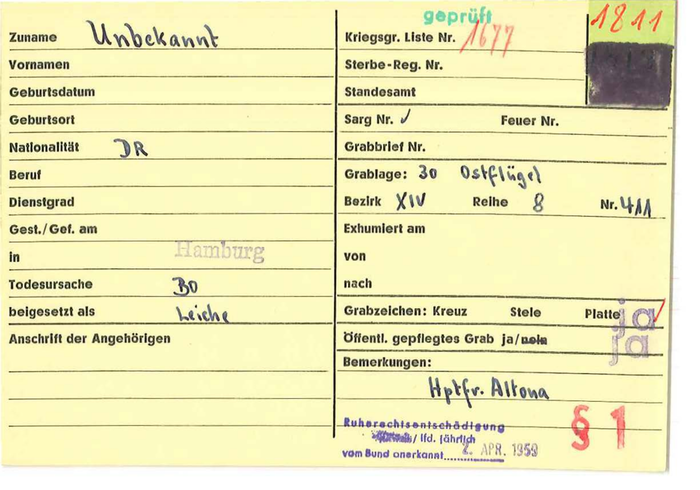 geprüft
1811
Zuname Unbekannt
Kriegsgr. Liste Nr. 1677
Vornamen
Sterbe-Reg. Nr.
Geburtsdatum
Standesamt
Geburtsort
Sarg Nr. ✓ Feuer Nr.
Nationalität DR
Grabbrief Nr.
Beruf
Grablage: 30 Ostflügel
Dienstgrad
Bezirk XIV Reihe 8 Nr. 411
Gest./Gef. am
Exhumiert am
in Hamburg
von
Todesursache BO
nach
beigesetzt als Leiche
Grabzeichen: Kreuz Stele Platte ja
Anschrift der Angehörigen
Öffentl. gepflegtes Grab ja/nein ja
Bemerkungen:
Hptfr. Altona
Ruherechtsentschädigung
/ lfd. jährlich
vom Bund anerkannt 2. APR. 1959
§ 1